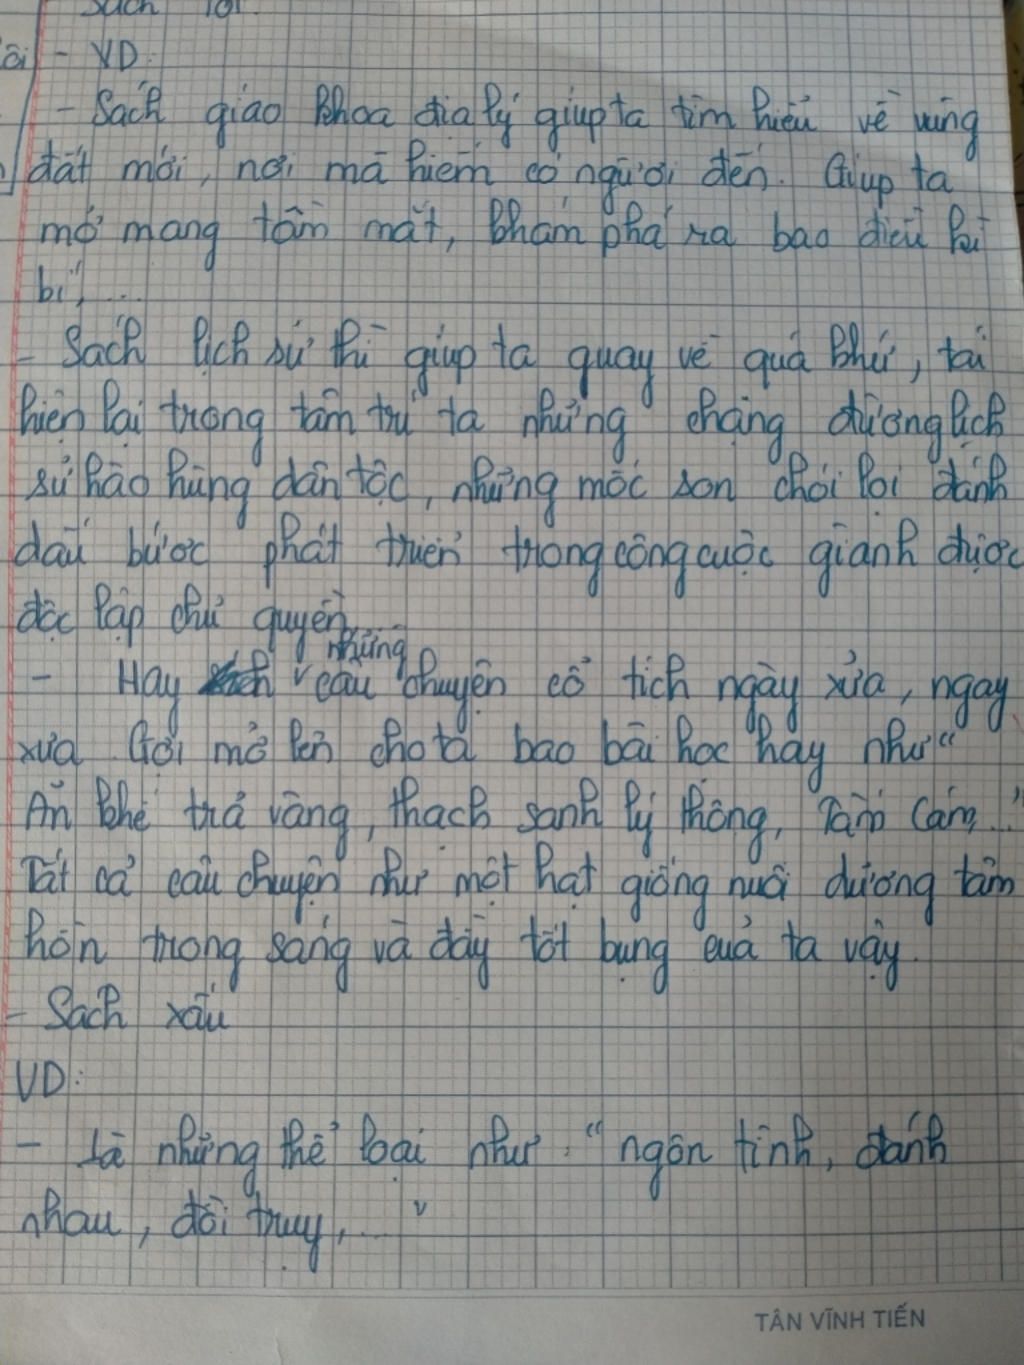 sách tốt.
- VD:
- Sách giáo khoa địa lý giúp ta tìm hiểu về vùng
đất mới, nơi mà hiếm có người đến. Giúp ta
mở mang tầm mắt, khám phá ra bao điều kì
bí,...
- Sách lịch sử thì giúp ta quay về quá khứ, tái
hiện lại trong tâm trí ta những chặng đường lịch
sử hào hùng dân tộc, những mốc son chói lọi đánh
dấu bước phát triển trong công cuộc giành được
độc lập chủ quyền.
- Hay những câu chuyện cổ tích ngày xửa, ngay
xưa. Gợi mở lên cho ta bao bài học hay như "
Ăn khế trả vàng, thạch sanh lý thông, Tấm Cám,..."
Tất cả câu chuyện như một hạt giống nuôi dưỡng tâm
hồn trong sáng và đầy tốt bụng của ta vậy.
- Sách xấu
VD:
- Là những thể loại như: "ngôn tình, đánh
nhau, đồi truỵ,..."
TÂN VĨNH TIẾN